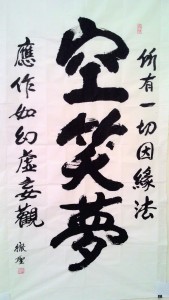 所有一切因緣法
空笑夢
應作如幻虛妄觀